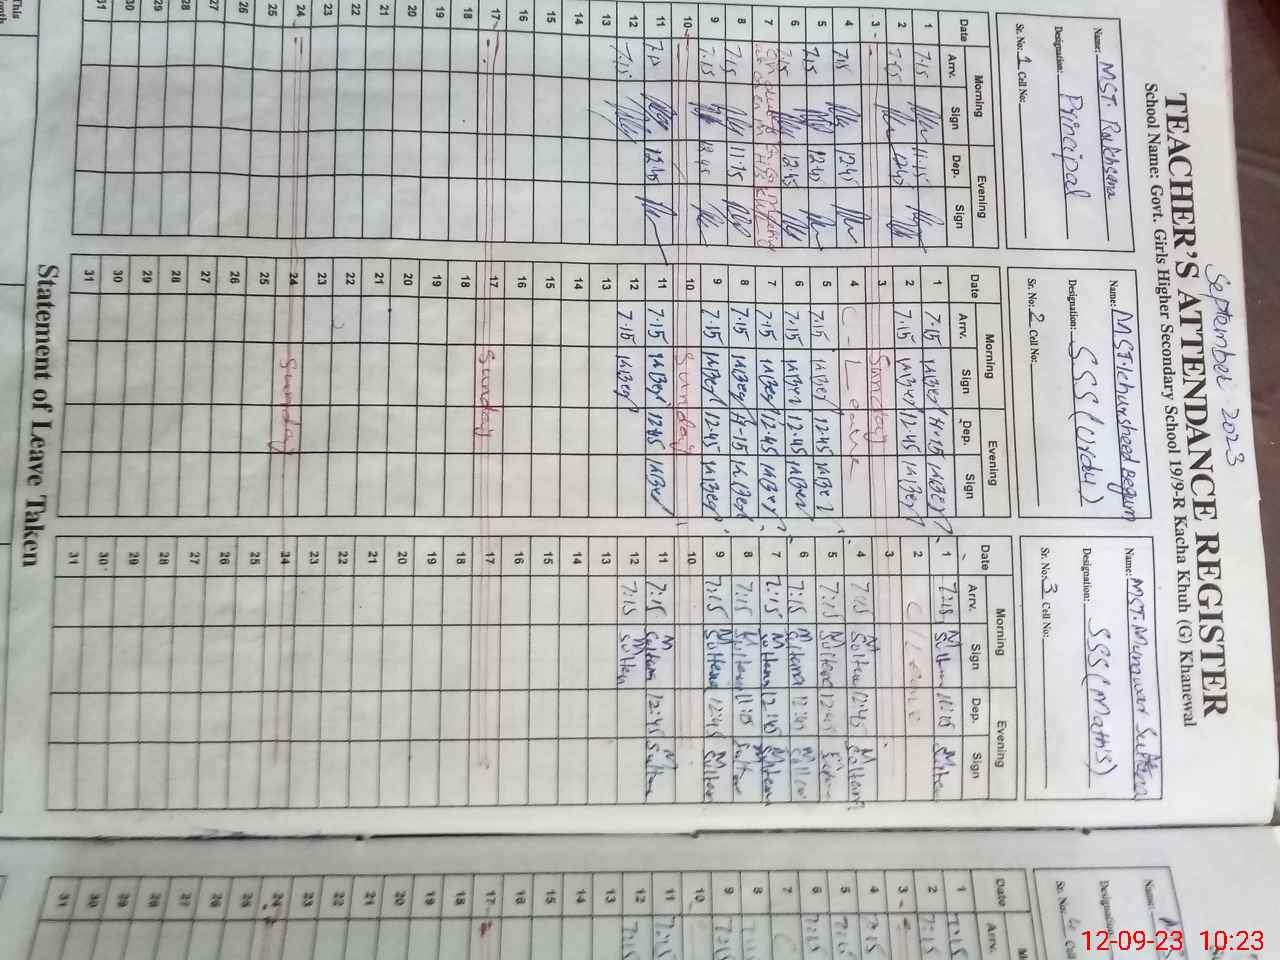 September 2023
TEACHER'S ATTENDANCE REGISTER
School Name: Govt. Girls Higher Secondary School 19/9-R Kacha Khuh (G) Khanewal
Name: MST. Rukhsana
Designation: Principal
Sr. No: 1 Cell No:
Date Morning Evening
Arrv. Sign Dep. Sign
1 7:15 11:15
2 7:15 12:45
3
4 7:15 12:45
5 7:15 12:45
6 7:15 12:45
7
8 7:15 11:15
9 7:15 12:45
10
11 7:15 12:45
12 7:15
13
14
15
16
17
18
19
20
21
22
23
24
25
26
27
28
29
30
31
Name: MST. Khursheed Begum
Designation: SSS (Urdu)
Sr. No: 2 Cell No:
Date Morning Evening
Arrv. Sign Dep. Sign
1 7.15 11-15
2 7.15 12.45
3 Sunday
4 C - Leave
5 7.15 12.45
6 7.15 12.45
7 7.15 12.45
8 7.15 11-15
9 7.15 12.45
10 Sunday
11 7.15 12.45
12 7.15
13
14
15
16
17 Sunday
18
19
20
21
22
23
24 Sunday
25
26
27
28
29
30
31
Name: MST. Munawar Sultana
Designation: SSS (Math's)
Sr. No: 3 Cell No:
Date Morning Evening
Arrv. Sign Dep. Sign
1 7:15 M Sultana 11:15 M Sultana
2 C/Leave
3
4 7:15 M Sultana 12:45 M Sultana
5 7:15 M Sultana 12:45 M Sultana
6 7:15 M Sultana 12:45 M Sultana
7 7:15 M Sultana 12:45 M Sultana
8 7:15 M Sultana 11:15 M Sultana
9 7:15 M Sultana 12:45 M Sultana
10
11 7:15 M Sultana 12:45 M Sultana
12 7:15 M Sultana
13
14
15
16
17
18
19
20
21
22
23
24
25
26
27
28
29
30
31
Statement of Leave Taken
Name:
Designation
Sr. No: 4 Cell
Date
Arrv.
1 7:15
2 7:15
3
4 7:15
5 7:15
6 7:15
7
8
9 7:15
10
11 7:15
12 7:15
13
14
15
16
17
18
19
20
21
22
23
24
25
26
27
28
29
30
31
12-09-23 10:23